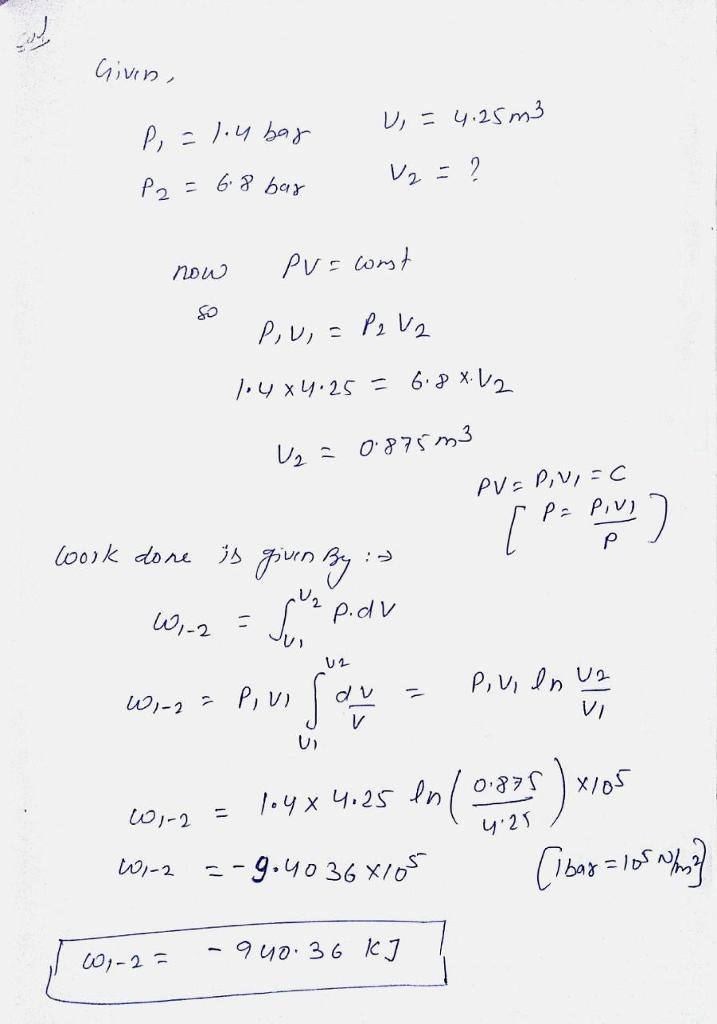 Sol
Given,
P₁ = 1.4 bar V₁ = 4.25 m³
P₂ = 6.8 bar V₂ = ?
now PV = const
so P₁V₁ = P₂V₂
1.4 x 4.25 = 6.8 x V₂
V₂ = 0.875 m³
PV = P₁V₁ = C
[P = P₁V₁/P]
Work done is given By :→
W₁-₂ = ∫V₁^V₂ P.dV
W₁-₂ = P₁V₁ ∫V₁^V₂ dV/V = P₁V₁ ln V₂/V₁
W₁-₂ = 1.4 x 4.25 ln(0.875/4.25) x10⁵
W₁-₂ = -9.4036 x10⁵ [1bar = 10⁵ N/m²]
W₁-₂ = -940.36 KJ